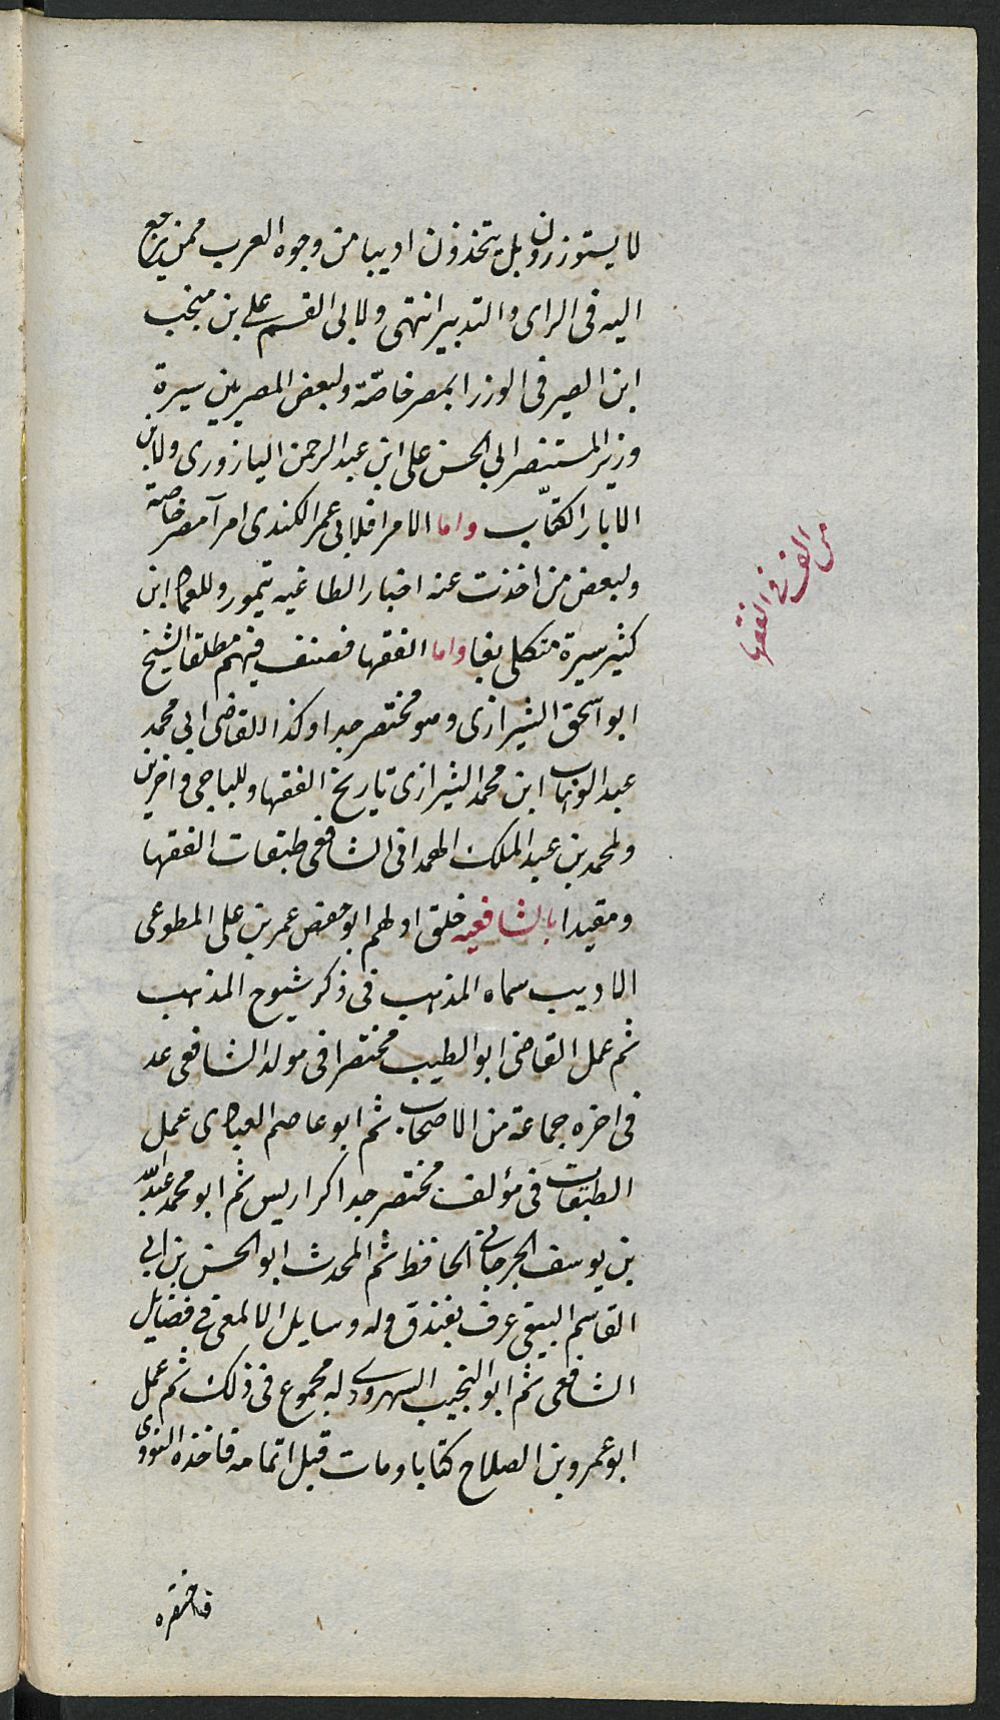 لا يستوزرون بل يتخذون اديبا من وجوه العرب ممن يرجع
اليه فى الراى والتدبير انتهى ولابى القسم على بن منجب
ابن الصيرفى الوزرا بمصر خاصّة ولبعض المصريين سيرة
وزير المستنصر ابي الحسن على ابن عبد الرحمن اليازورى ولابن
الابار الكتّاب واما الامرا فلابى عمر الكندى امرآ مصر خاصة
ولبعض من اخذت عنه اخبار الطاغيه تيمور وللعماد ابن
كثير سيرة منكلى بغا واما الفقها فصنف فيهم مطلقا الشيخ
ابو اسحق الشيرازى وهو مختصر جدا وكذا للقاضى ابى محمد
عبد الوهاب ابن محمد الشيرازى تاريخ الفقها وللباجى واخرين
ولمحمد بن عبد الملك الهمدانى الشافعى طبقات الفقها
ومقيدا بالشافعيه خلق اولهم ابو حفص عمر بن على المطوعى
الاديب سماه المذهب فى ذكر شيوخ المذهب
ثم عمل القاضى ابو الطيب مختصرا فى مولد الشافعى عد
فى اخره جماعة من الاصحاب ثم ابو عاصم العبادى عمل
الطبقات فى مؤلف مختصر جدا كراريس ثم ابو محمد عبد الله
بن يوسف الجرجانى الحافظ ثم المحدث ابو الحسن بن ابى
القاسم البيهقى عرف بفندق وله وسايل الالمعى فى فضايل
الشافعى ثم ابو النجيب السهروردى له مجموع فى ذلك ثم عمل
ابو عمرو بن الصلاح كتابا ومات قبل اتمامه فاخذه النووى
فاختصره
من الف فى الفقها